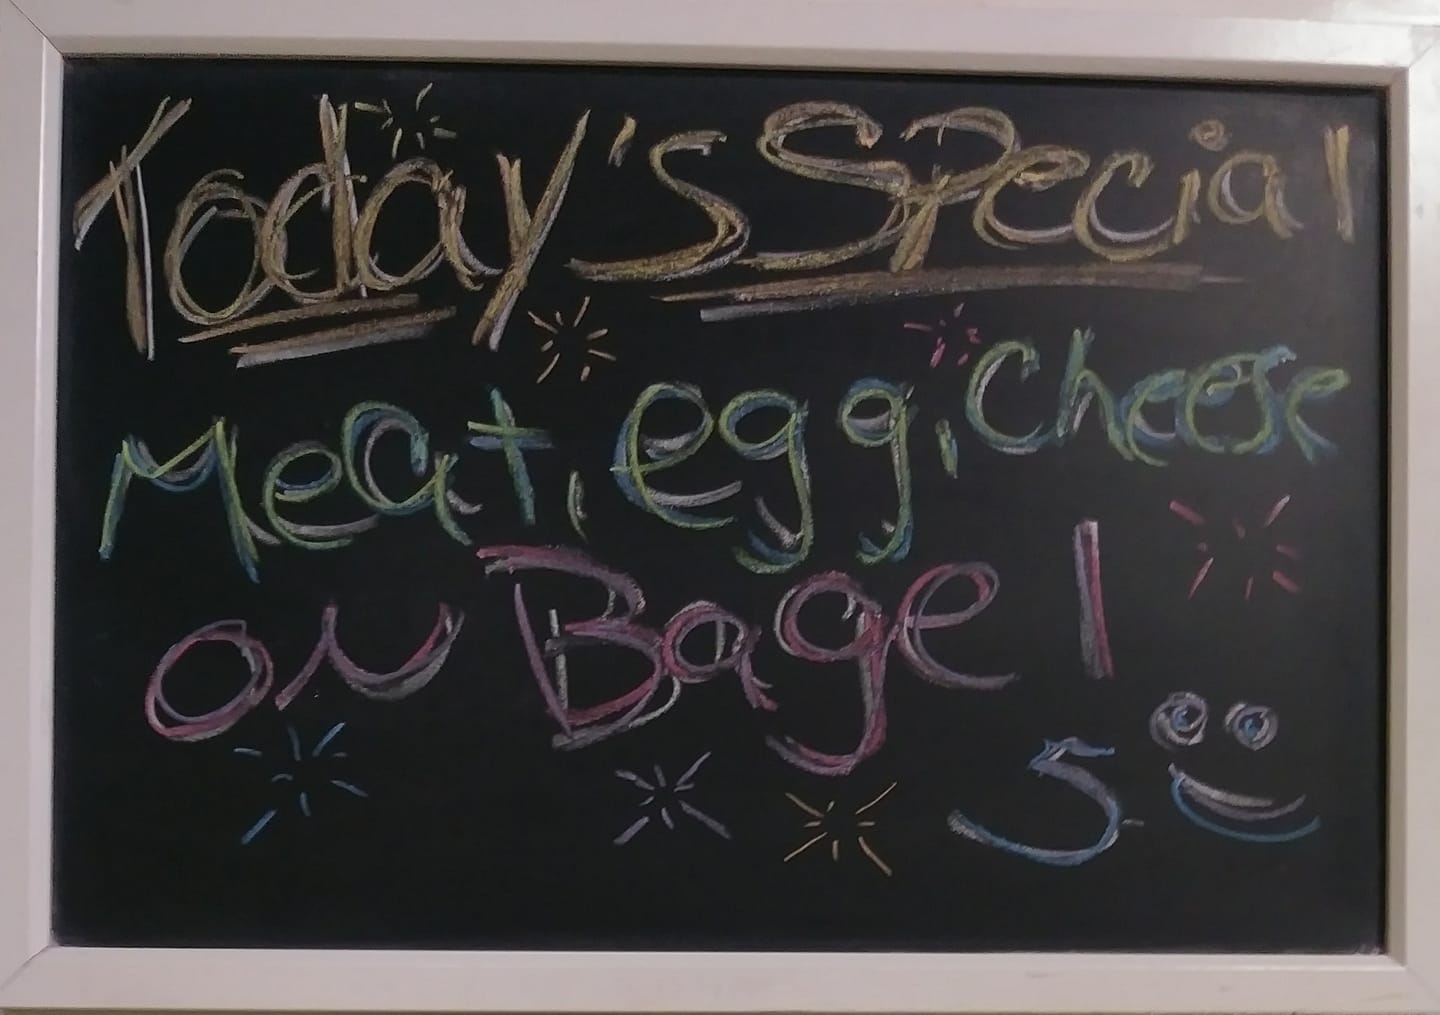 Today's Special
Meat, egg, Cheese
on Bagel
5